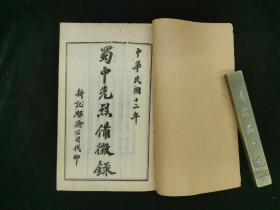 中華民國十二年
蜀中先烈備徵錄
新記啓渝公司代印